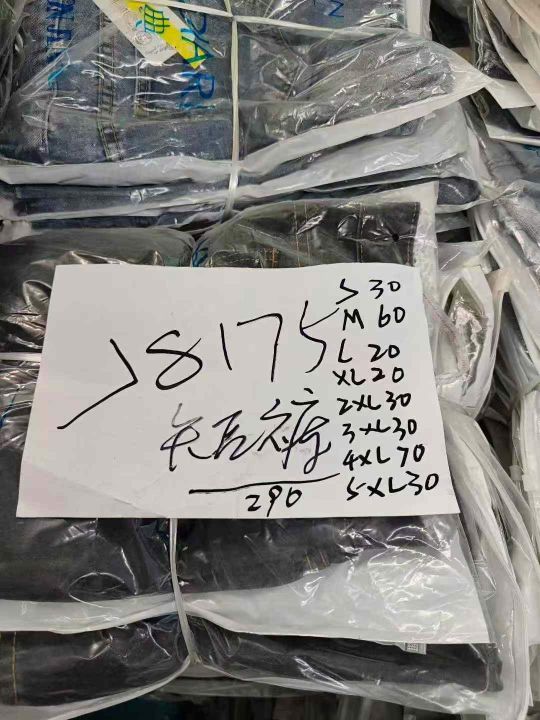 典
J8175
长区裤
290
S 30
M 60
L 20
XL 20
2XL 30
3XL 30
4XL 70
5XL 30